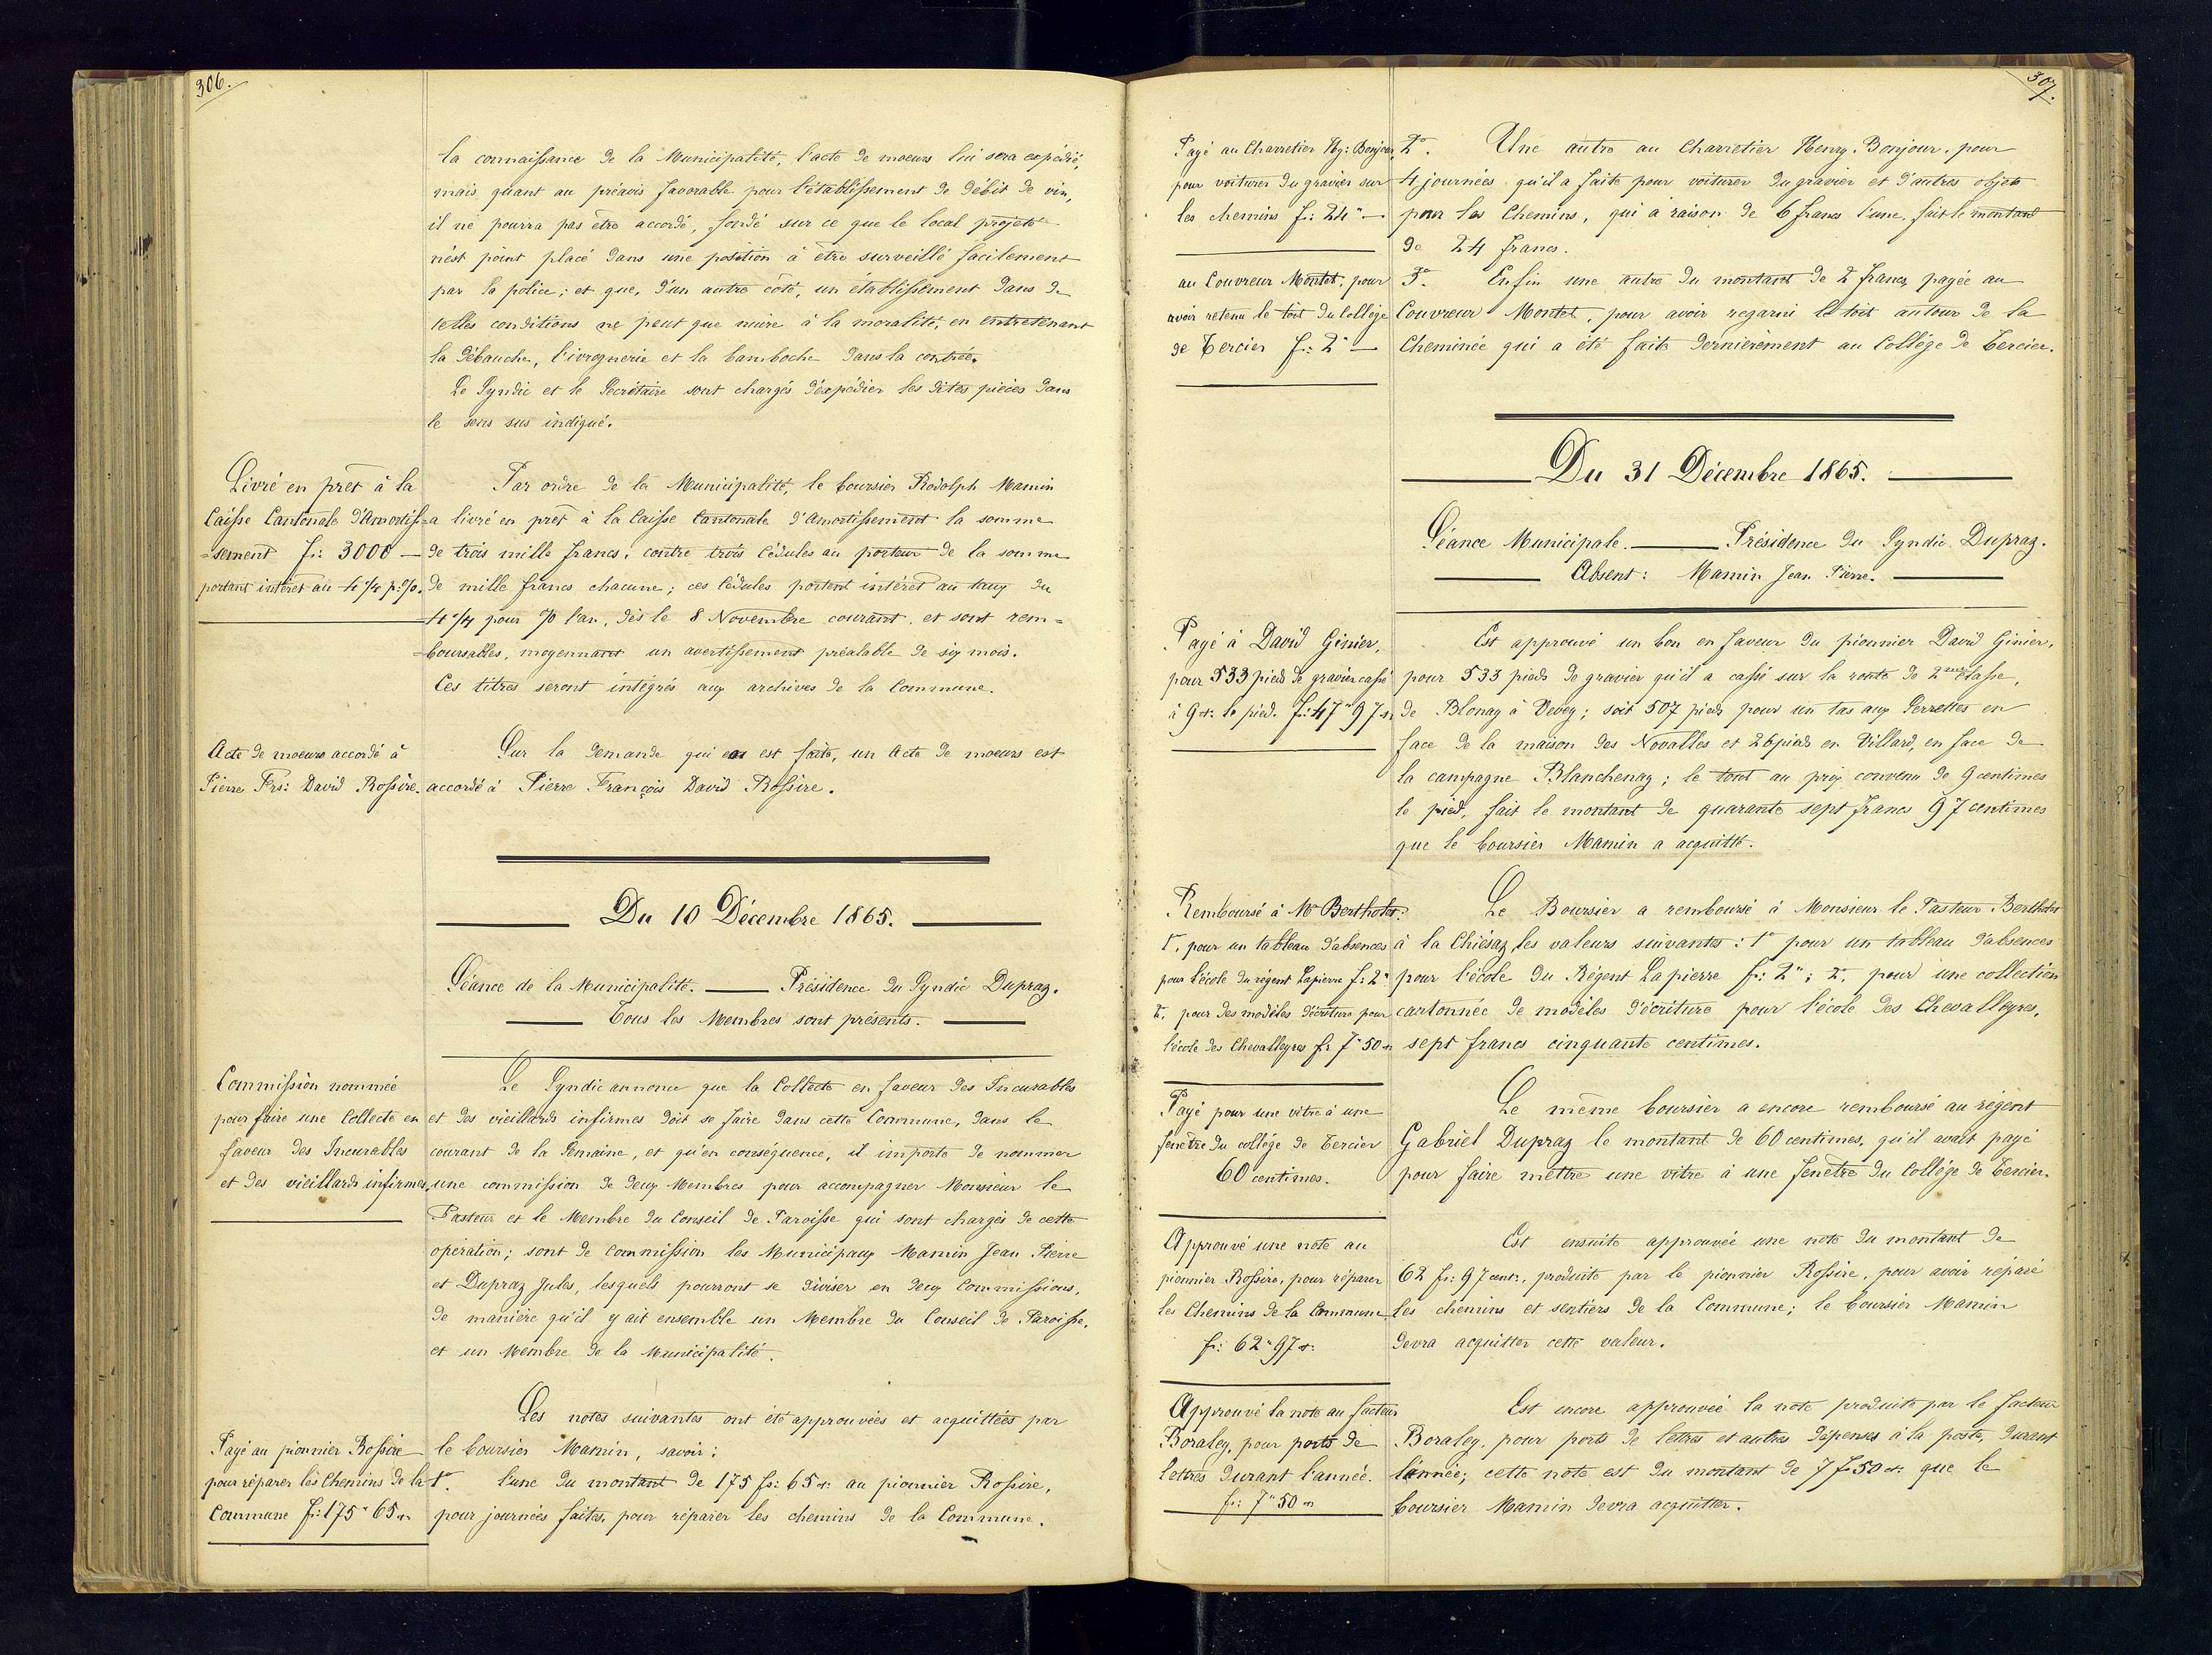 306.
la connaissance de la Municipalité, l'acte de moeurs lui sera expédié,
mais, quant au préavis favorable pour l'établissement de débit de vin,
il ne pourra pas être accordé, fondé sur ce que le local projeté
n'est point placé dans une position à être surveillé facilement
par la police; et que, d'un autre côté, un établissement dans de
telles conditions ne peut que nuire à la moralité, en entretenant
la débauche, l'ivrognerie et la bamboche dans la contrée.
Le Syndic et le Secrétaire sont chargés d'expédier les dites pièces dans
le sens sus indiqué.
Livré en prêt à la
Caisse Cantonale d'Amortis-
=sement fr: 3000 —
portant intérêt au 4 1/4 p: %.
Par ordre de la Municipalité, le boursier Rodolph Mamin
a livré en prêt à la Caisse Cantonale d'Amortissement la somme
de trois mille francs; contre trois Cédules au porteur de la somme
de mille francs chacune; ces Cédules portent intérêt au taux du
4 1/4 pour % l'an, dès le 8 Novembre courant, et sont rem=
=boursables, moyennant un avertissement préalable de six mois.
Ces titres seront intégrés aux archives de la Commune.
Acte de moeurs accordé à
Pierre Frs: David Rossire.
Sur la demande qui en est faite, un Acte de moeurs est
accordé à Pierre François David Rossire.
Du 10 Décembre 1865.
Séance de la Municipalité. — Présidence du Syndic Dupraz.
Tous les Membres sont présents.
Commission nommée
pour faire une Collecte en
faveur des Incurables
et des vieillards infirmes.
Le Syndic annonce que la Collecte en faveur des Incurables
et des vieillards infirmes doit se faire dans cette Commune, dans le
courant de la Semaine, et qu'en conséquence, il importe de nommer
une commission de deux Membres pour accompagner Monsieur le
Pasteur et le Membre du Conseil de Paroisse qui sont chargés de cette
opération; sont de commission les Municipaux Mamin Jean Pierre
et Dupraz Jules, lesquels pourront se diviser en deux Commissions,
de manière qu'il y ait ensemble un Membre du Conseil de Paroisse,
et un Membre de la Municipalité.
Les notes suivantes ont été approuvées et acquittées par
le boursier Mamin, savoir:
Payé au pionnier Rossire
pour réparer les Chemins de la
Commune fr: 175" 65 ct
1°. l'une du montant de 175 fr: 65 ct: au pionnier Rossire,
pour journées faites, pour réparer les chemins de la Commune.
307.
Payé au Charretier Hy: Bonjour,
pour voiturer du gravier sur
les chemins fr: 24" —
2°. Une autre au Charretier Henry Bonjour, pour
4 journées qu'il a faite pour voiturer du gravier et d'autres objets
pour les Chemins, qui à raison de 6 francs l'une, fait le montant
de 24 francs.
au Couvreur Montet, pour
avoir retenu le toit du Collège
de Tercier fr: 2" —
3°. Enfin une autre du montant de 2 francs payée au
Couvreur Montet, pour avoir regarni le toit autour de la
Cheminée qui a été faite dernièrement au Collège de Tercier.
Du 31 Décembre 1865.
Séance Municipale. — Présidence du Syndic Dupraz.
Absent: Mamin Jean Pierre.
Payé à David Ginier,
pour 533 pieds de gravier cassé
à 9 ct: le pied. fr: 47" 97 ct
Est approuvé un bon en faveur du pionnier David Ginier,
pour 533 pieds de gravier qu'il a cassé sur la route de 2me Classe,
de Blonay à Vevey; soit 507 pieds pour un tas aux Perrettes en
face de la maison des Novalles et 26 pieds en Villard, en face de
la campagne Blanchenay; le tout au prix convenu de 9 centimes
le pied, fait le montant de quarante sept francs 97 centimes
que le boursier Mamin a acquitté.
Remboursé à Mr Bertholet:
1°. pour un tableau d'absences
pour l'école du régent Lapierre f: 2"
2°. pour des modèles d'écriture pour
l'école des Chevalleyres fr 7" 50 ct
Le Boursier a remboursé à Monsieur le Pasteur Bertholet
à la Chiésaz, les valeurs suivantes: 1° pour un tableau d'absences
pour l'école du Régent Lapierre fr: 2"; 2°. pour une collection
cartonnée de modèles d'écriture pour l'école des Chevalleyres,
sept francs cinquante centimes.
Payé pour une vitre à une
fenêtre du collège de Tercier
60 centimes.
Le même boursier a encore remboursé au régent
Gabriel Dupraz le montant de 60 centimes, qu'il avait payé
pour faire mettre une vitre à une fenêtre du Collège de Tercier.
Approuvé une note au
pionnier Rossire, pour réparer
les Chemins de la Commune
fr: 62" 97 ct:
Est ensuite approuvée une note du montant de
62 fr: 97 cent:, produite par le pionnier Rossire, pour avoir réparé
les chemins et sentiers de la Commune; le boursier Mamin
devra acquitter cette valeur.
Approuvé la note au facteur
Boraley, pour ports de
lettres durant l'année.
fr: 7" 50 ct
Est encore approuvée la note produite par le facteur
Boraley, pour ports de lettres et autres dépenses à la poste, durant
l'année; cette note est du montant de 7 f 50 ct: que le
boursier Mamin devra acquitter.